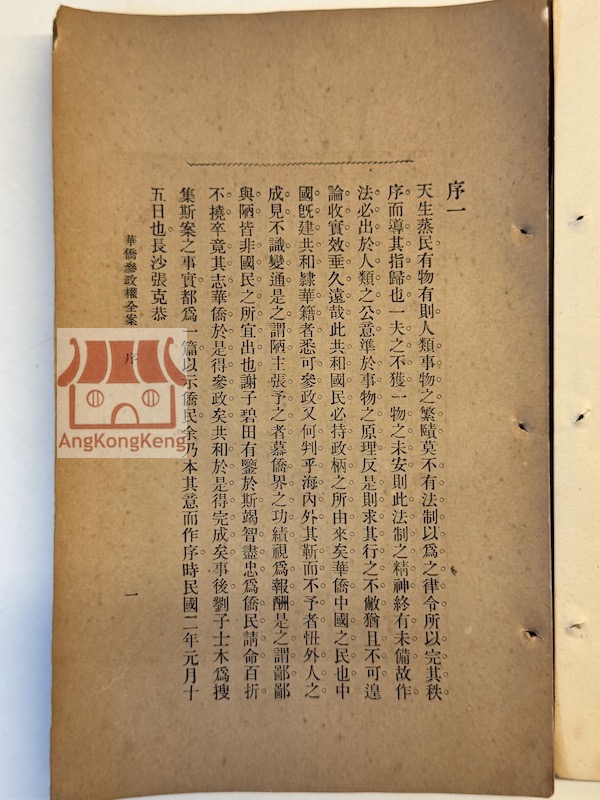 序一
天生蒸民有物有則人類事物之繁賾莫不有法制以爲之律令所以完其秩
序而導其指歸也一夫之不獲一物之未安則此法制之精神終有未備故作
法必出於人類之公意準於事物之原理反是則求其行之不敝猶且不可遑
論收實效垂久遠哉此共和國民必持政柄之所由來矣華僑中國之民也中
國旣建共和隸華籍者悉可參政又何判乎海內外其靳而不予者忸外人之
成見不識變通是之謂陋主張予之者慕僑界之功績視爲報酬是之謂鄙鄙
與陋皆非國民之所宜出也謝子碧田有鑒於斯竭智盡忠爲僑民請命百折
不撓卒竟其志華僑於是得參政矣共和於是得完成矣事後劉子士木爲搜
集斯案之事實都爲一篇以示僑民余乃本其意而作序時民國二年元月十
五日也長沙張克恭
華僑參政權全案 序 一
AngKongKeng